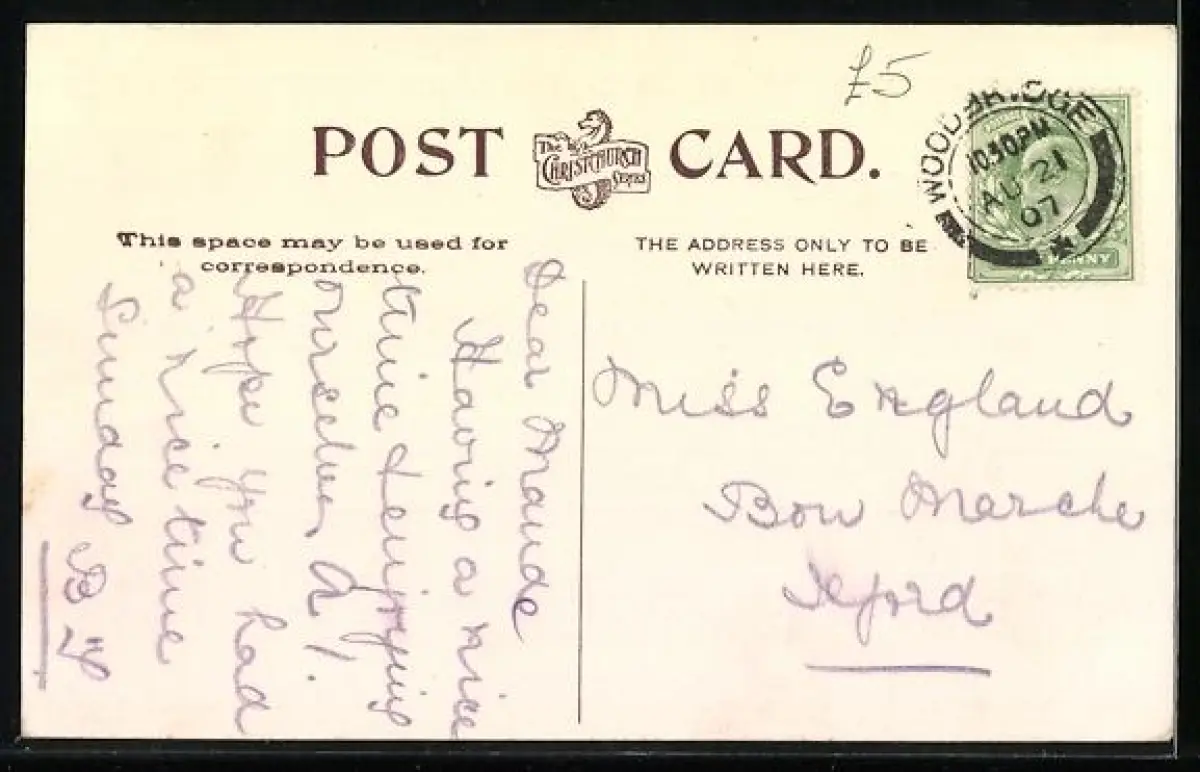 £5
POST CARD.
The
CHRISTCHURCH
Series
WOODBRIDGE
1030PM
AU 21
07
PENNY
This space may be used for
correspondence.
THE ADDRESS ONLY TO BE
WRITTEN HERE.
Dear Maude
Having a nice
time & enjoying
ourselves, A1.
Hope you had
a nice time
Sunday
Miss England
Bon Marche
Ilford